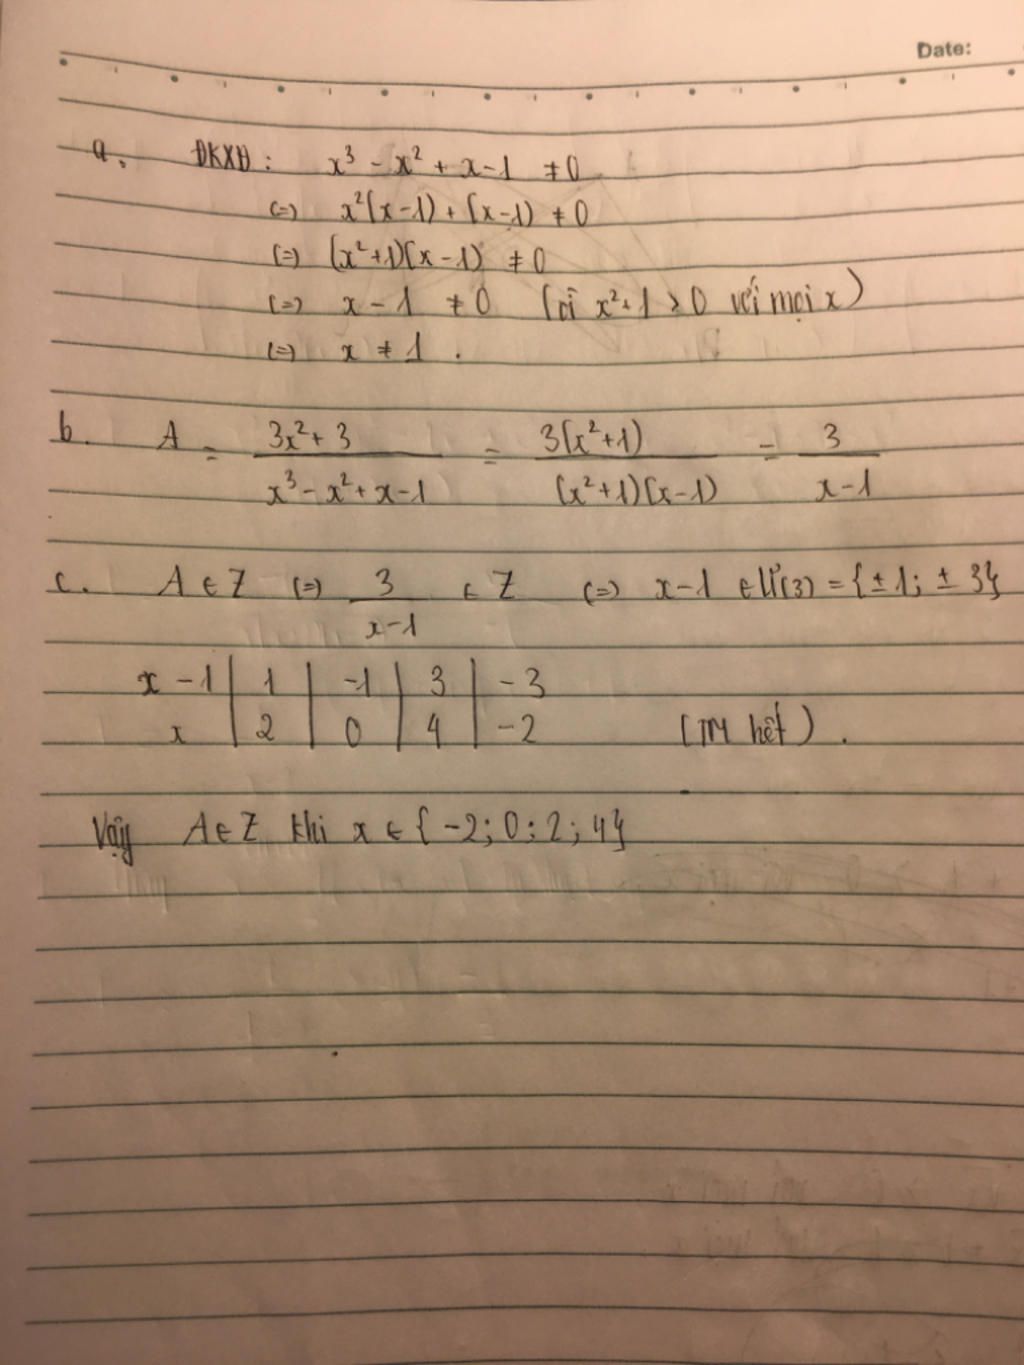 Date:
a. ĐKXĐ: x³ - x² + x - 1 ≠ 0
(=) x²(x-1) + (x-1) ≠ 0
(=) (x²+1)(x-1) ≠ 0
(=) x - 1 ≠ 0 (vì x²+1 > 0 với mọi x)
(=) x ≠ 1.
b. A = (3x²+3)/(x³-x²+x-1) = 3(x²+1)/((x²+1)(x-1)) = 3/(x-1)
c. A ∈ Z (=) 3/(x-1) ∈ Z (=) x-1 ∈ Ư(3) = {±1; ±3}
x - 1 | 1 | -1 | 3 | -3
x | 2 | 0 | 4 | -2 (TM hết).
Vậy A ∈ Z khi x ∈ {-2; 0; 2; 4}